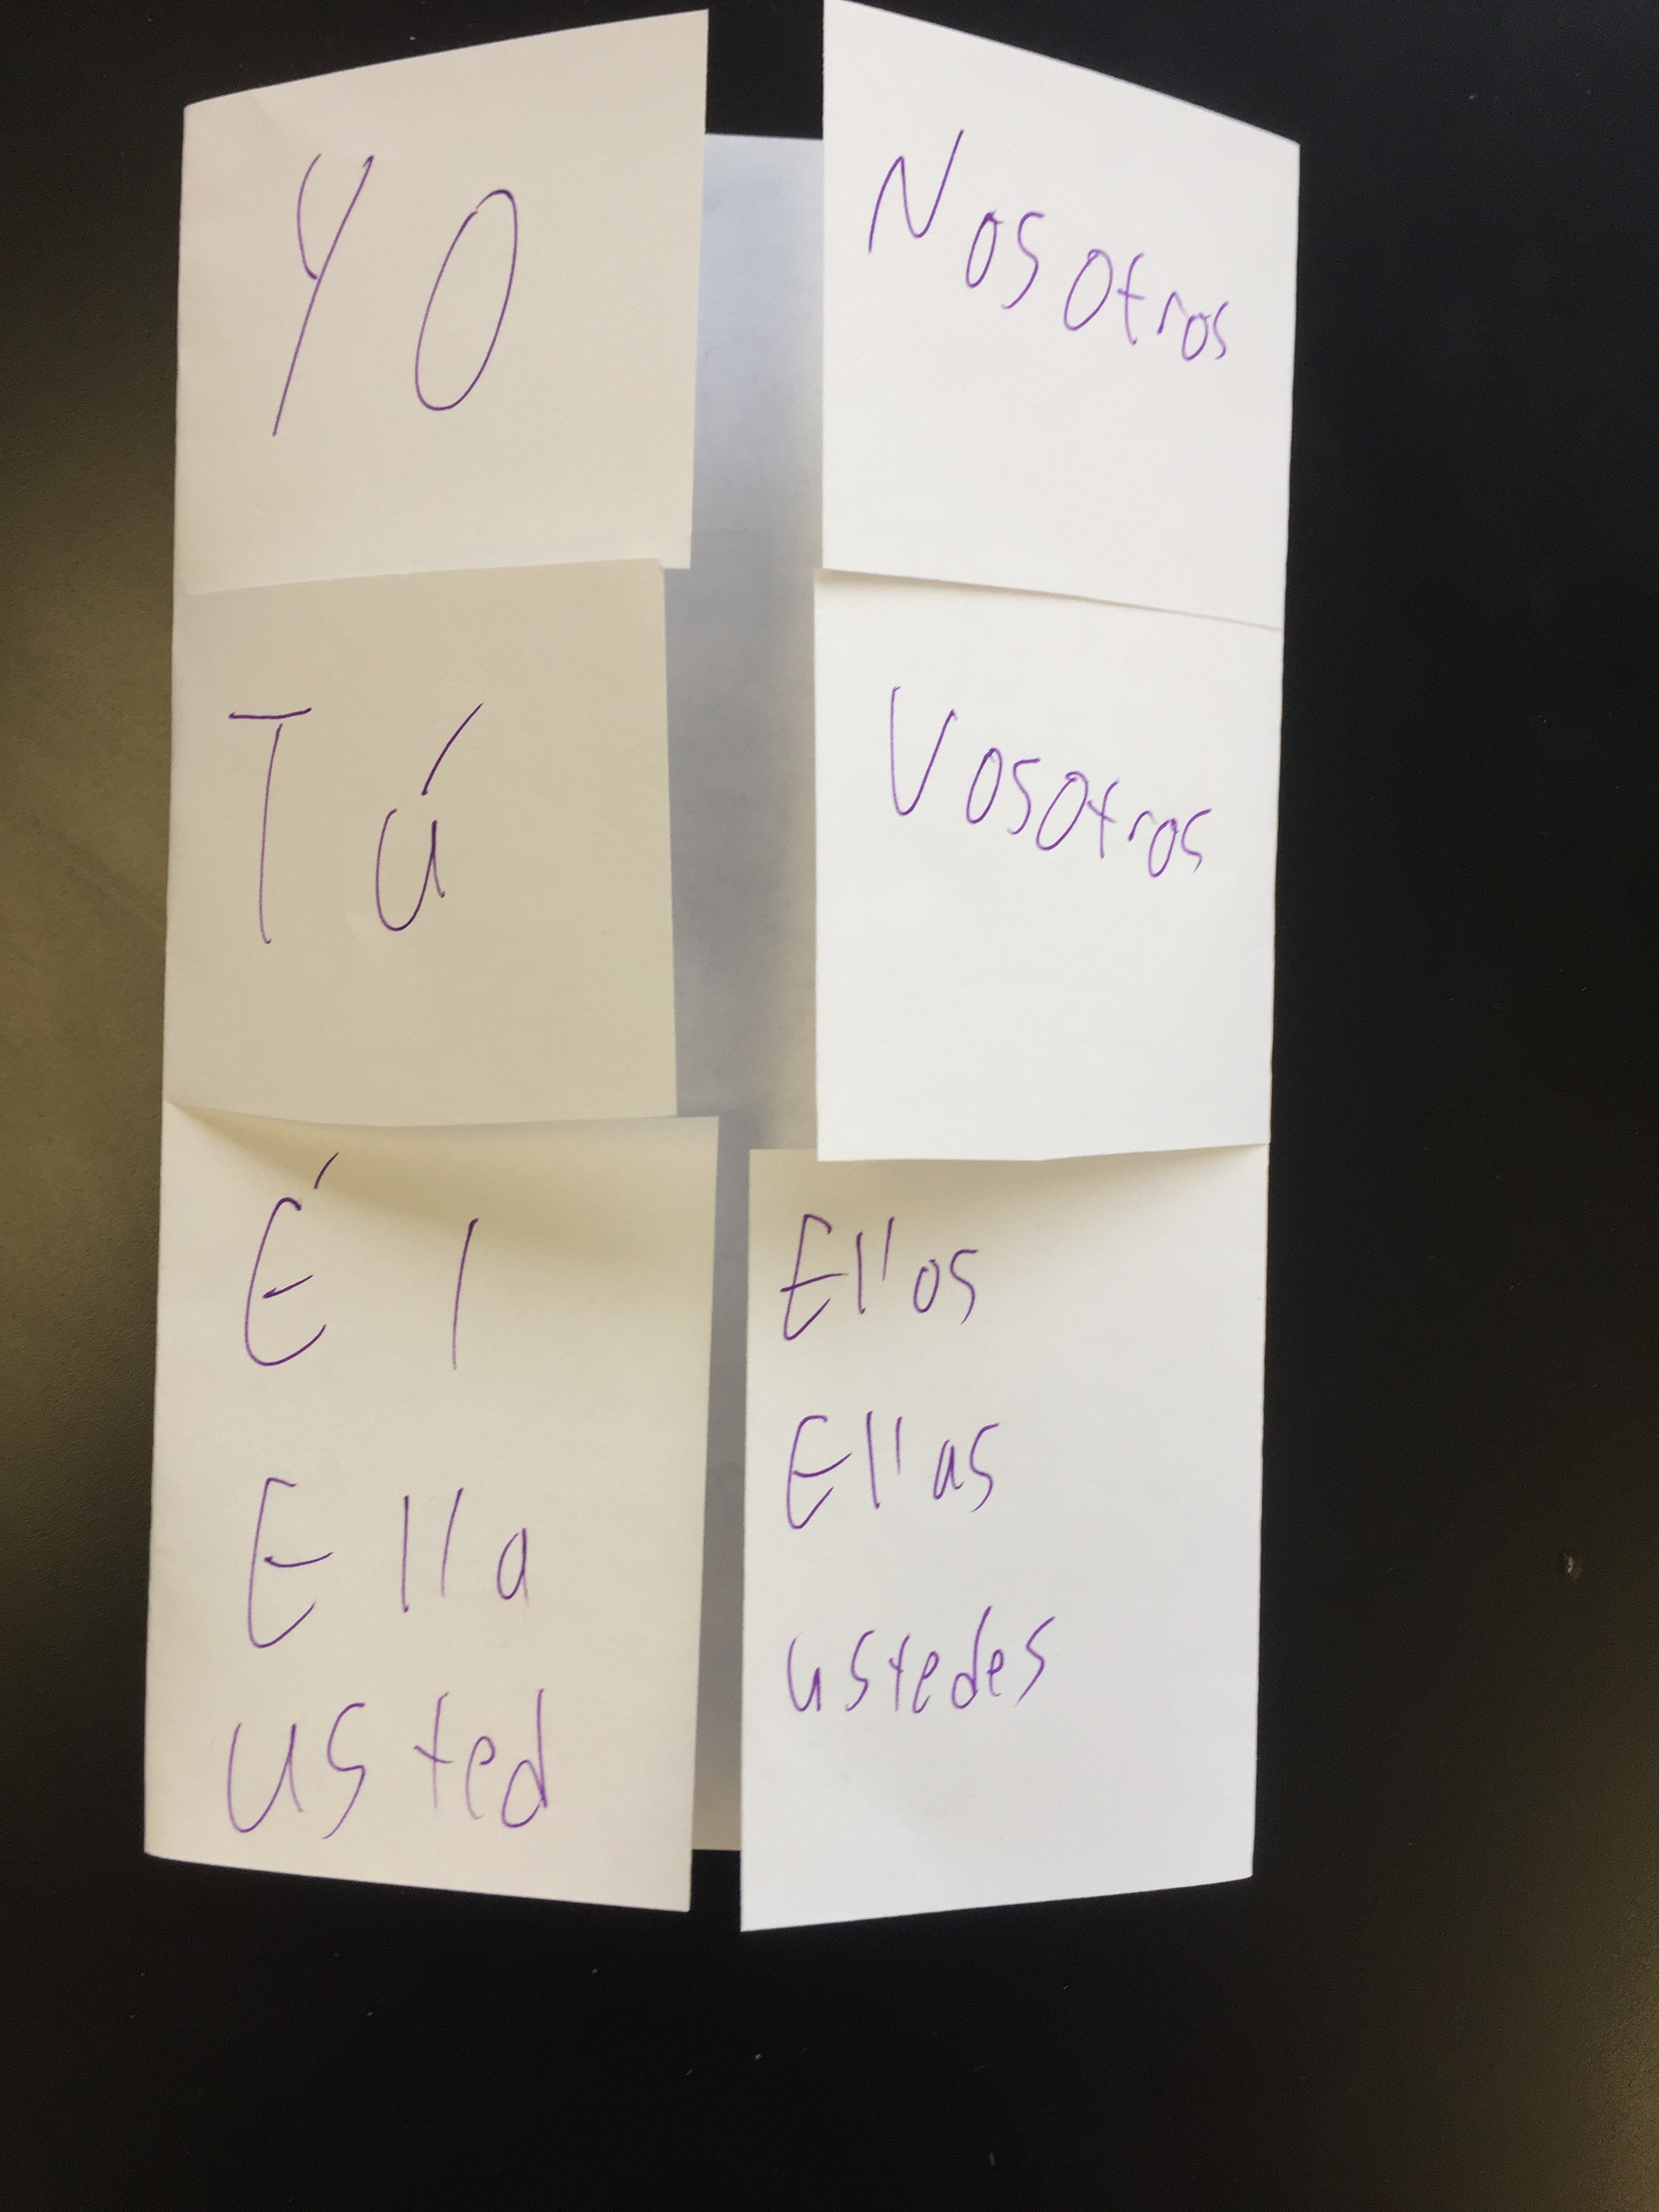 Yo
Nosotros
Tú
Vosotros
Él
Ella
usted
Ellos
Ellas
ustedes